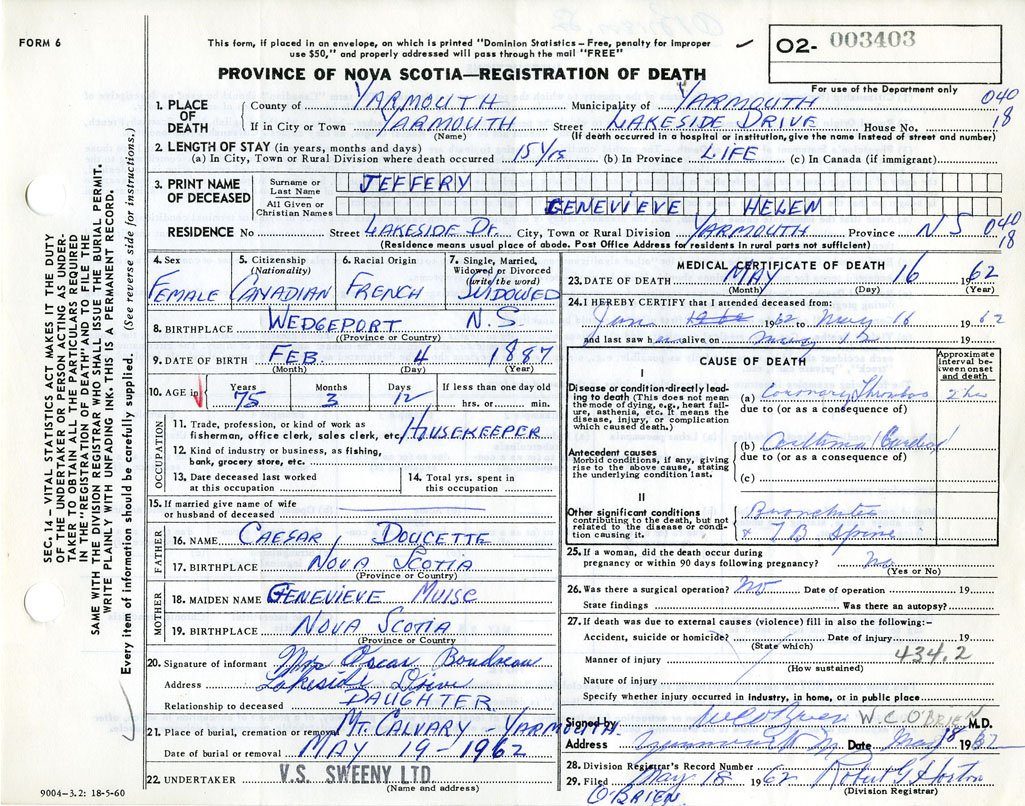 FORM 6
This form, if placed in an envelope, on which is printed "Dominion Statistics – Free, penalty for improper
use $50," and properly addressed will pass through the mail "FREE"
02- 003403
For use of the Department only
PROVINCE OF NOVA SCOTIA—REGISTRATION OF DEATH
SEC. 14 – VITAL STATISTICS ACT MAKES IT THE DUTY
OF THE UNDERTAKER OR PERSON ACTING AS UNDER-
TAKER TO OBTAIN ALL THE PARTICULARS REQUIRED
IN THE "REGISTRATION OF DEATH" AND TO FILE THE
SAME WITH THE DIVISION REGISTRAR WHO SHALL ISSUE THE BURIAL PERMIT.
WRITE PLAINLY WITH UNFADING INK. THIS IS A PERMANENT RECORD.
Every item of information should be carefully supplied. (See reverse side for instructions.)
1. PLACE OF DEATH
County of YARMOUTH Municipality of YARMOUTH 040
If in City or Town YARMOUTH Street LAKESIDE DRIVE House No. 18
(Name) (If death occurred in a hospital or institution, give the name instead of street and number)
2. LENGTH OF STAY (in years, months and days)
(a) In City, Town or Rural Division where death occurred 15 Yrs (b) In Province LIFE (c) In Canada (if immigrant)
3. PRINT NAME OF DECEASED
Surname or Last Name JEFFERY
All Given or Christian Names GENEVIEVE HELEN
RESIDENCE No Street LAKESIDE Dr. City, Town or Rural Division YARMOUTH Province N S 040 18
(Residence means usual place of abode. Post Office Address for residents in rural parts not sufficient)
4. Sex FEMALE
5. Citizenship (Nationality) CANADIAN
6. Racial Origin FRENCH
7. Single, Married, Widowed or Divorced (write the word) WIDOWED
8. BIRTHPLACE WEDGEPORT N.S.
(Province or Country)
9. DATE OF BIRTH FEB. 4 1887
(Month) (Day) (Year)
10. AGE in Years 75 Months 3 Days 12 If less than one day old hrs. or min.
OCCUPATION
11. Trade, profession, or kind of work as
fisherman, office clerk, sales clerk, etc. HOUSEKEEPER
12. Kind of industry or business, as fishing,
bank, grocery store, etc.
13. Date deceased last worked at this occupation
14. Total yrs. spent in this occupation
15. If married give name of wife
or husband of deceased
FATHER
16. NAME CAESAR, DOUCETTE
17. BIRTHPLACE NOVA SCOTIA
(Province or Country)
MOTHER
18. MAIDEN NAME GENEVIEVE MUISE
19. BIRTHPLACE NOVA SCOTIA
(Province or Country)
20. Signature of informant Mrs Oscar Boudreau
Address Lakeside Drive
Relationship to deceased DAUGHTER
21. Place of burial, cremation or removal MT. CALVARY - YARMOUTH.
Date of burial or removal MAY 19 - 1962
22. UNDERTAKER V.S. SWEENY LTD.
(Name and address)
9004-3.2: 18-5-60
MEDICAL CERTIFICATE OF DEATH
23. DATE OF DEATH MAY 16 62
(Month) (Day) (Year)
24. I HEREBY CERTIFY that I attended deceased from:
Jan. 1962 to May 16 1962
and last saw h alive on May 12 19
CAUSE OF DEATH
Approximate interval between onset and death
I
Disease or condition directly leading
to death (This does not mean
the mode of dying, eg., heart failure,
asthenia, etc. It means the
disease, injury, or complication
which caused death.)
(a) Coronary Thrombos 2 hrs
due to (or as a consequence of)
Antecedent causes
Morbid conditions, if any, giving
rise to the above cause, stating
the underlying condition last.
(b) Asthma (Cardiac)
due to (or as a consequence of)
(c)
II
Other significant conditions
contributing to the death, but not
related to the disease or condition
causing it.
Bronchitis
& T B Spine
25. If a woman, did the death occur during
pregnancy or within 90 days following pregnancy? No
(Yes or No)
26. Was there a surgical operation? No Date of operation 19
State findings Was there an autopsy?
27. If death was due to external causes (violence) fill in also the following:-
Accident, suicide or homicide? Date of injury 19
(State which)
Manner of injury 434.2
(How sustained)
Nature of injury
Specify whether injury occurred in industry, in home, or in public place
Signed by W C O'Brien W.C. O'BRIEN M.D.
Address Yarmouth N. Date May 18 1962
28. Division Registrar's Record Number
29. Filed May 18 1962 Robert G Horton
(Division Registrar)
O'BRIEN